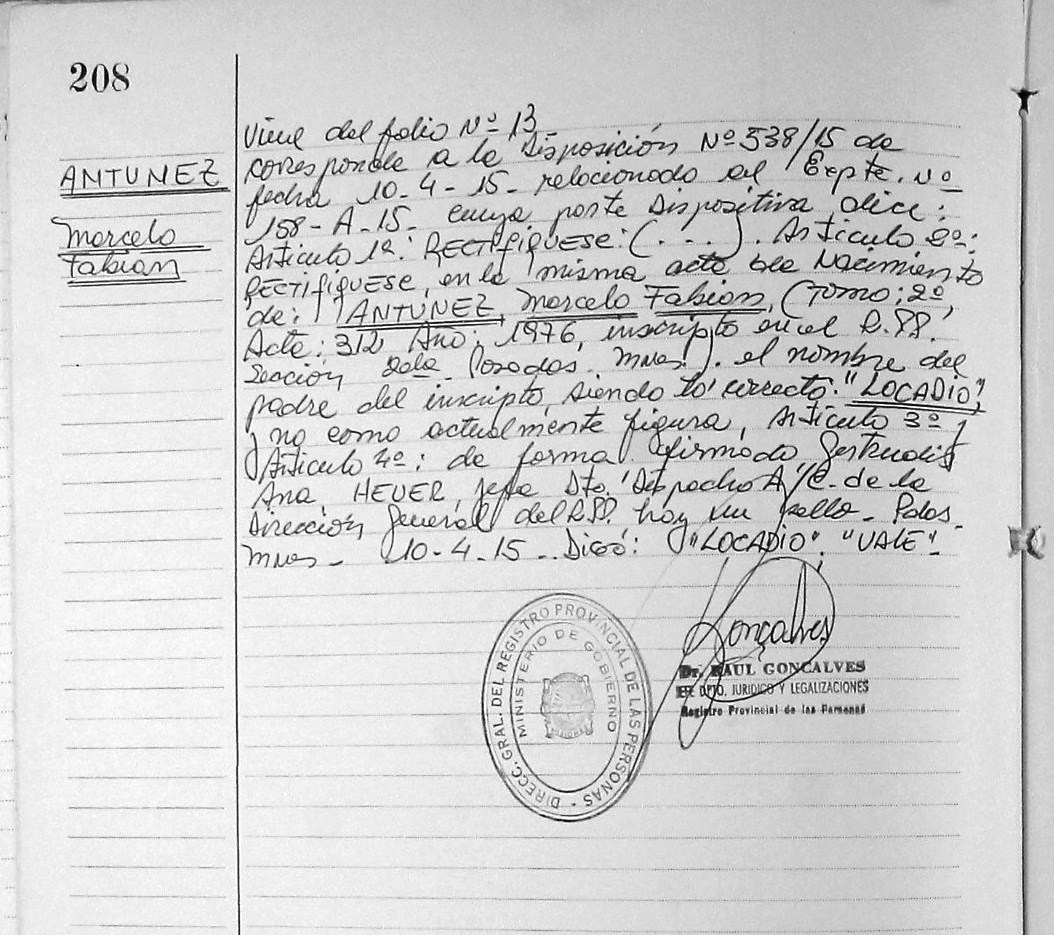 208
ANTUNEZ
Marcelo
Fabian
Viene del folio Nº 13
corresponde a la Disposición Nº 538/15 de
fecha 10-4-15- relacionado al Expte. Nº
158-A-15- cuya parte Dispositiva dice:
Artículo 1º: RECTIFIQUESE: (...). Artículo 2º:
RECTIFIQUESE, en la misma acta de Nacimiento
de: ANTUNEZ, Marcelo Fabian, (Tomo: 2º,
Acta: 312 Año: 1976, inscripto en el R.PP.
Sección 2da Posadas Mnes.). el nombre del
padre del inscripto, siendo lo correcto: "LOCADIO",
y no como actualmente figura, Artículo 3º y
Artículo 4º: de forma. firmado Gertrudis
Ana HEUER, jefa Dto. Despacho A/C. de la
Dirección General del R.PP. hay un sello- Pdas.
Mnes- 10-4-15-. Digo: "LOCADIO". "VALE".
Gonçalves
Dr. RAUL GONCALVES
DPTO. JURIDICO Y LEGALIZACIONES
Registro Provincial de las Personas
DIRECC. GRAL. DEL REGISTRO PROVINCIAL DE LAS PERSONAS
MINISTERIO DE GOBIERNO